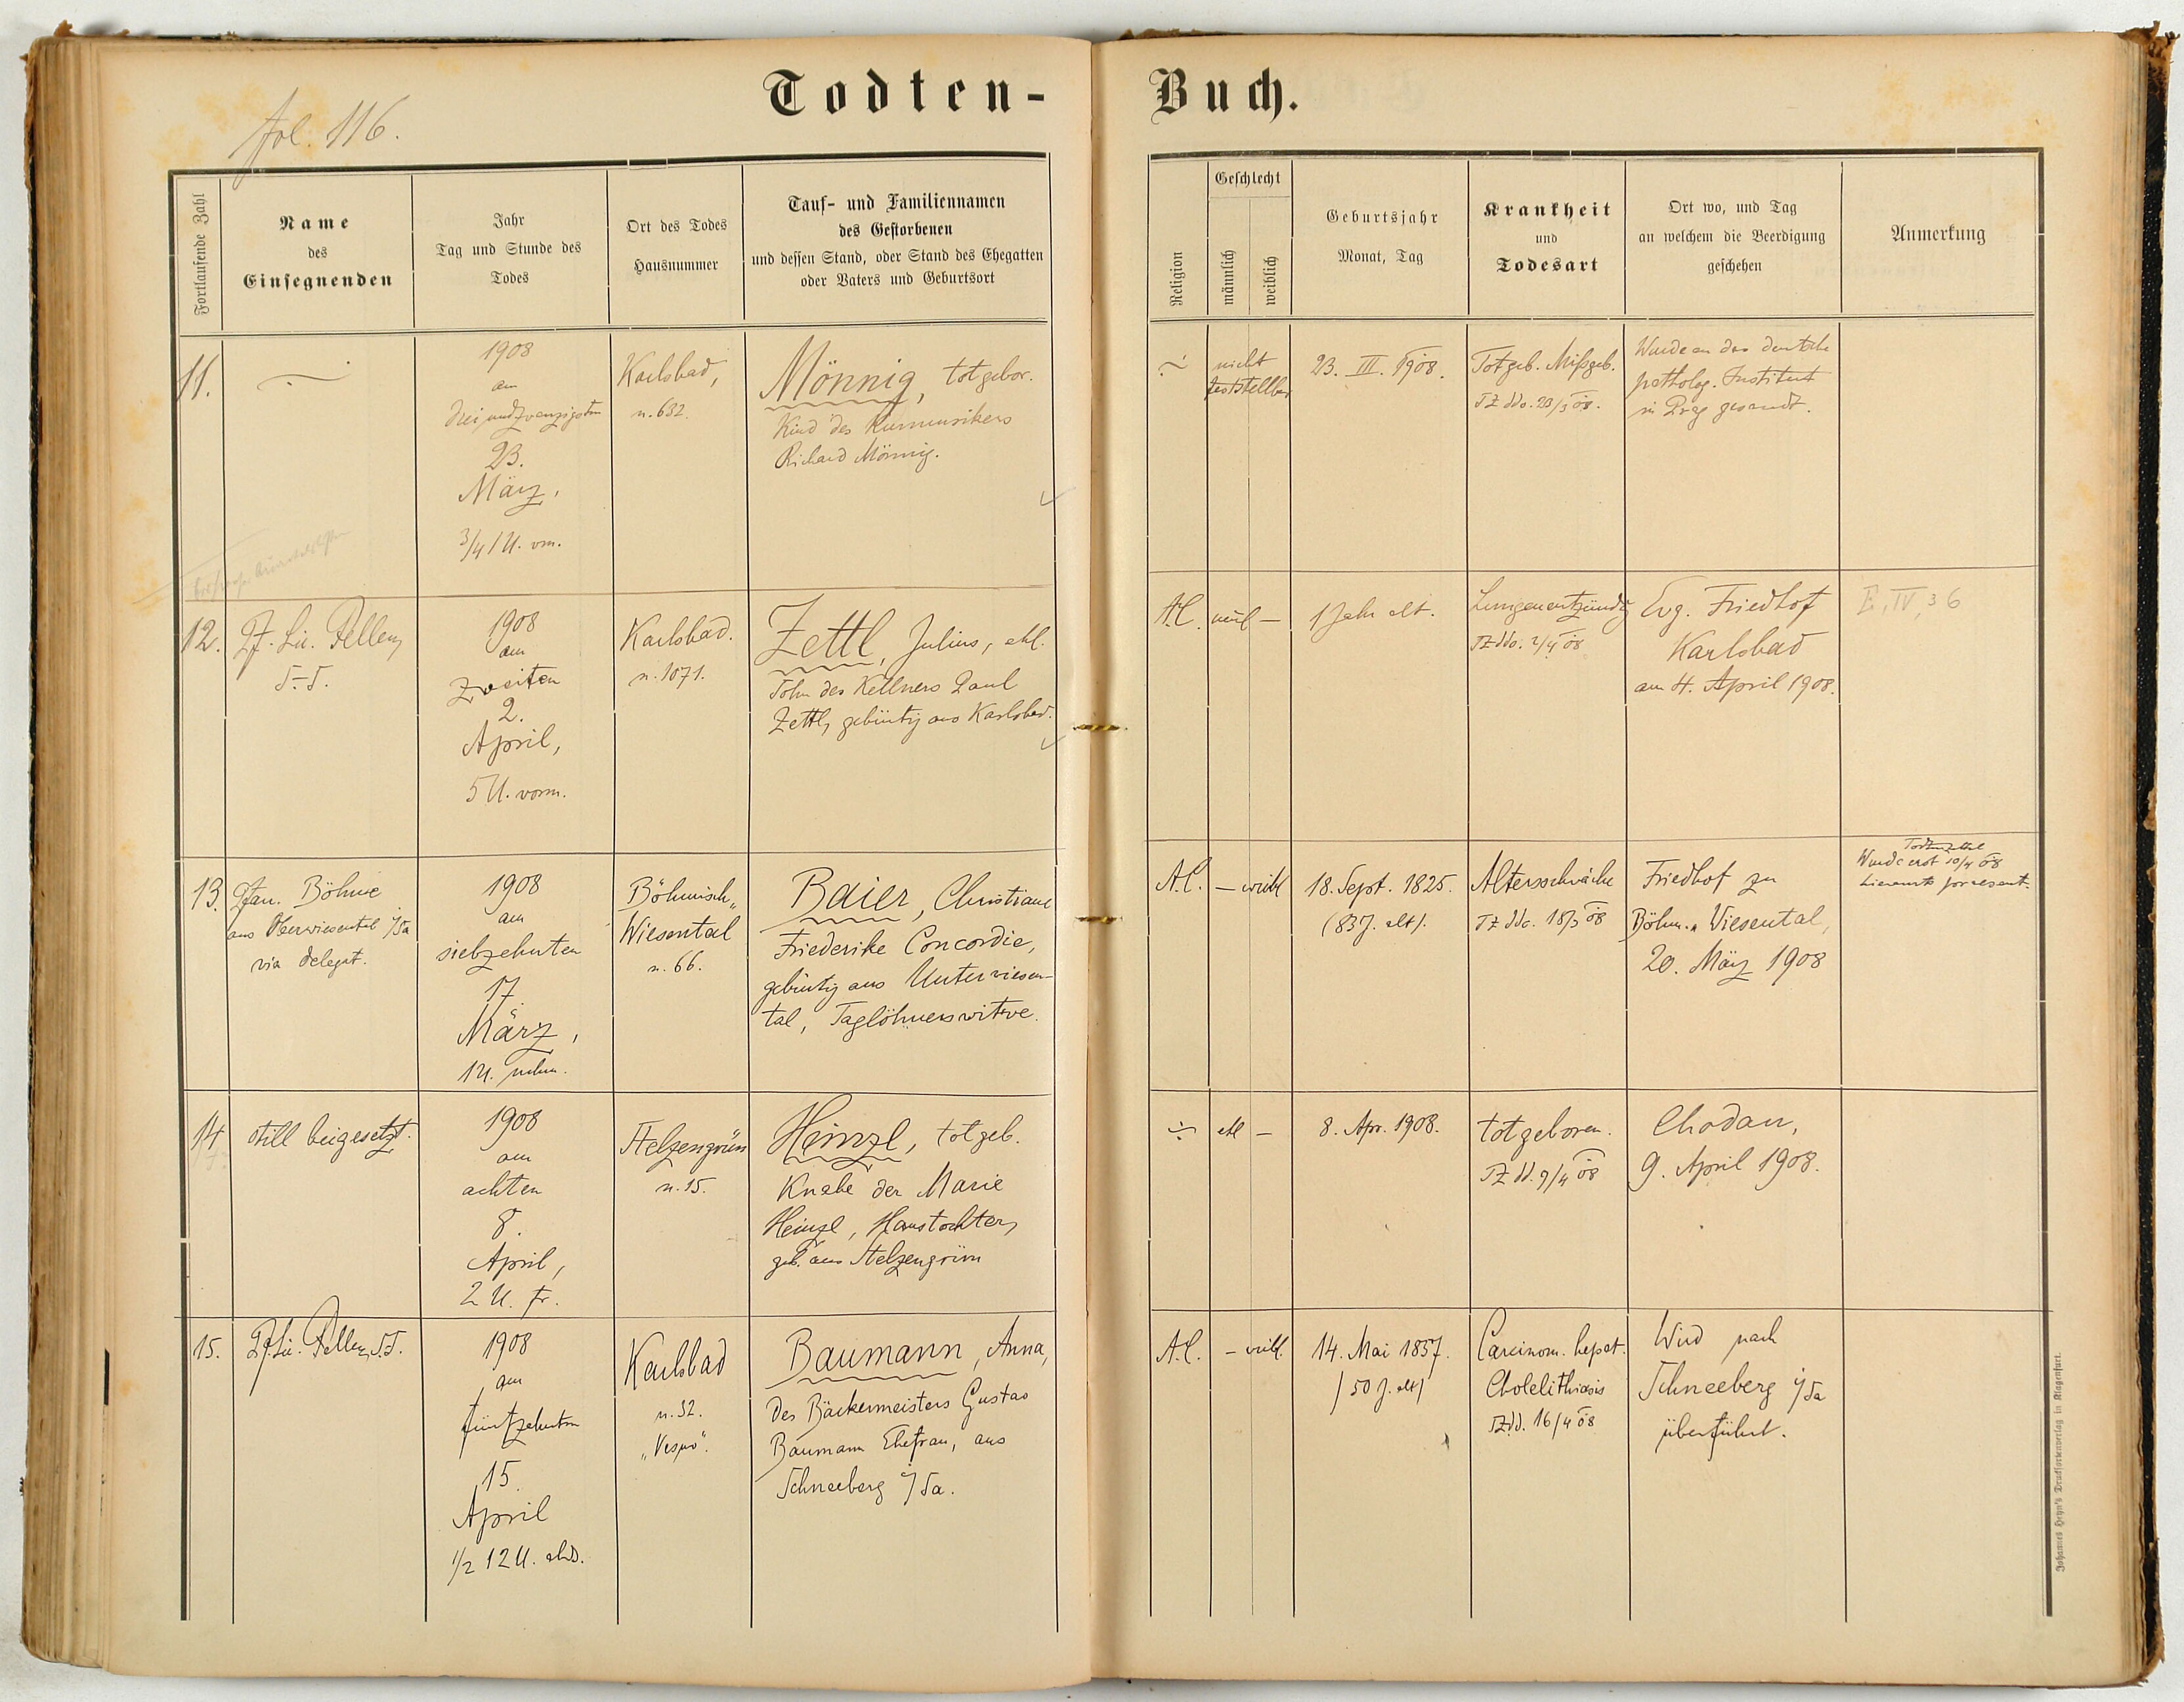 Todten-Buch.
fol. 116.
Fortlaufende Zahl
Name
des
Einsegnenden
Jahr
Tag und Stunde des
Todes
Ort des Todes
Hausnummer
Tauf- und Familiennamen
des Gestorbenen
und dessen Stand, oder Stand des Ehegatten
oder Vaters und Geburtsort
Religion
Geschlecht
männlich
weiblich
Geburtsjahr
Monat, Tag
Krankheit
und
Todesart
Ort wo, und Tag
an welchem die Beerdigung
geschehen
Anmerkung
11.
1908
am
dreiundzwanzigsten
23.
März,
3/4 1 U. vm.
Karlsbad,
n. 632.
Mönnig, totgebor.
Kind des Kurmusikers
Richard Mönnig.
nicht
feststellbar
23. III. 1908.
Totgeb. Mißgeb.
TZ ddo. 23/3 08.
Wurde an das deutsche
patholog. Institut
in Prag gesandt.
12.
Pf. Lic. Pellen
s.-s.
1908
am
zweiten
2.
April,
5 U. vorm.
Karlsbad.
n. 1071.
Zettl, Julius, ehl.
Sohn des Kellners Paul
Zettl, gebürtig aus Karlsbad.
A.C.
ml –
1 Jahr alt.
Lungenentzündg
TZ ddo. 2/4 08
Evg. Friedhof
Karlsbad
am 4. April 1908.
E, IV, 36
13.
Pfarr. Böhme
aus Oberwiesental i/Sa
via delegat.
1908
am
siebzehnten
17.
März,
1 U. nchm.
Böhmisch-
Wiesental
n. 66.
Baier, Christiane
Friederike Concordie,
gebürtig aus Unterwiesen-
tal, Taglöhnerswitwe.
A.C.
– weibl
18. Sept. 1825.
(83 J. alt).
Altersschwäche
TZ ddo. 18/3 08
Friedhof zu
Böhm.-Wiesental,
20. März 1908
Wurde erst 10/4 08
hieramts
14.
still beigesetzt.
1908
am
achten
8.
April,
2 U. fr.
Stelzengrün
n. 15.
Heinzl, totgeb.
Knabe der Marie
Heinzl, Haustochter,
geb. aus Stelzengrün
ehl –
8. Apr. 1908.
totgeboren.
TZ dd. 9/4 08
Chodau,
9. April 1908.
15.
Pf. Lic. Pellen s.s.
1908
am
fünfzehnten
15.
April
1/2 12 U. abds.
Karlsbad
n. 32.
Baumann, Anna,
des Bäckermeisters Gustav
Baumann Ehefrau, aus
Schneeberg i/Sa.
A.C.
– weibl.
14. Mai 1857.
/ 50 J. alt /
Carcinom. hepat.
Cholelithiasis
TZ dd. 16/4 08
Wird nach
Schneeberg i/Sa
überführt.
Johannes Heyn's Drucksortenverlag in Klagenfurt.